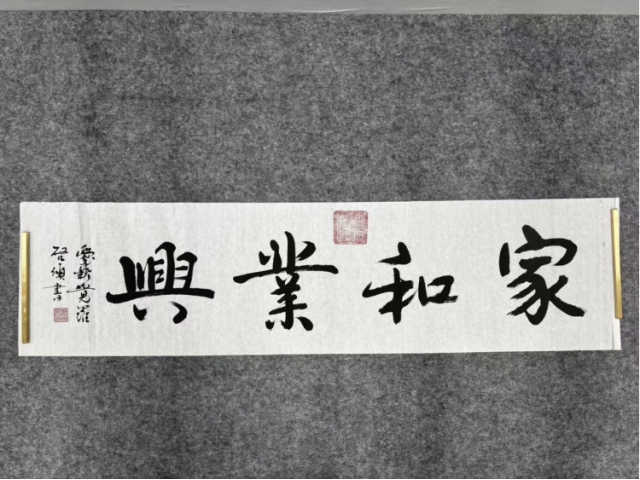 家和業興
愛新覺羅
啓頌書